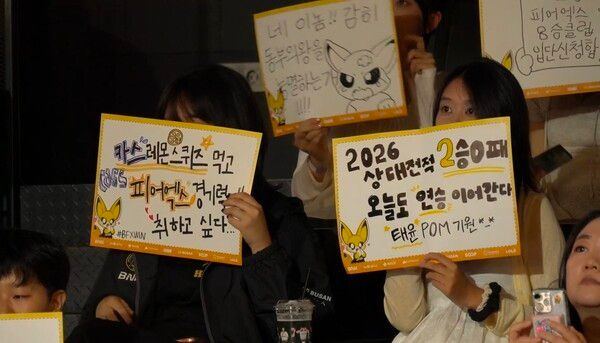 네 이놈!! 감히
동부의왕을
능멸하는가
!!!!
피어엑스
8승클럽
입단신청함
카스 레몬스퀴즈 먹고
피어엑스 경기력!!
취하고 싶다...
#BFXWIN
BNK
2026
상대전적 2승0패
오늘도 연승 이어간다
태윤 POM 기원 *_*
BNK
BUSAN